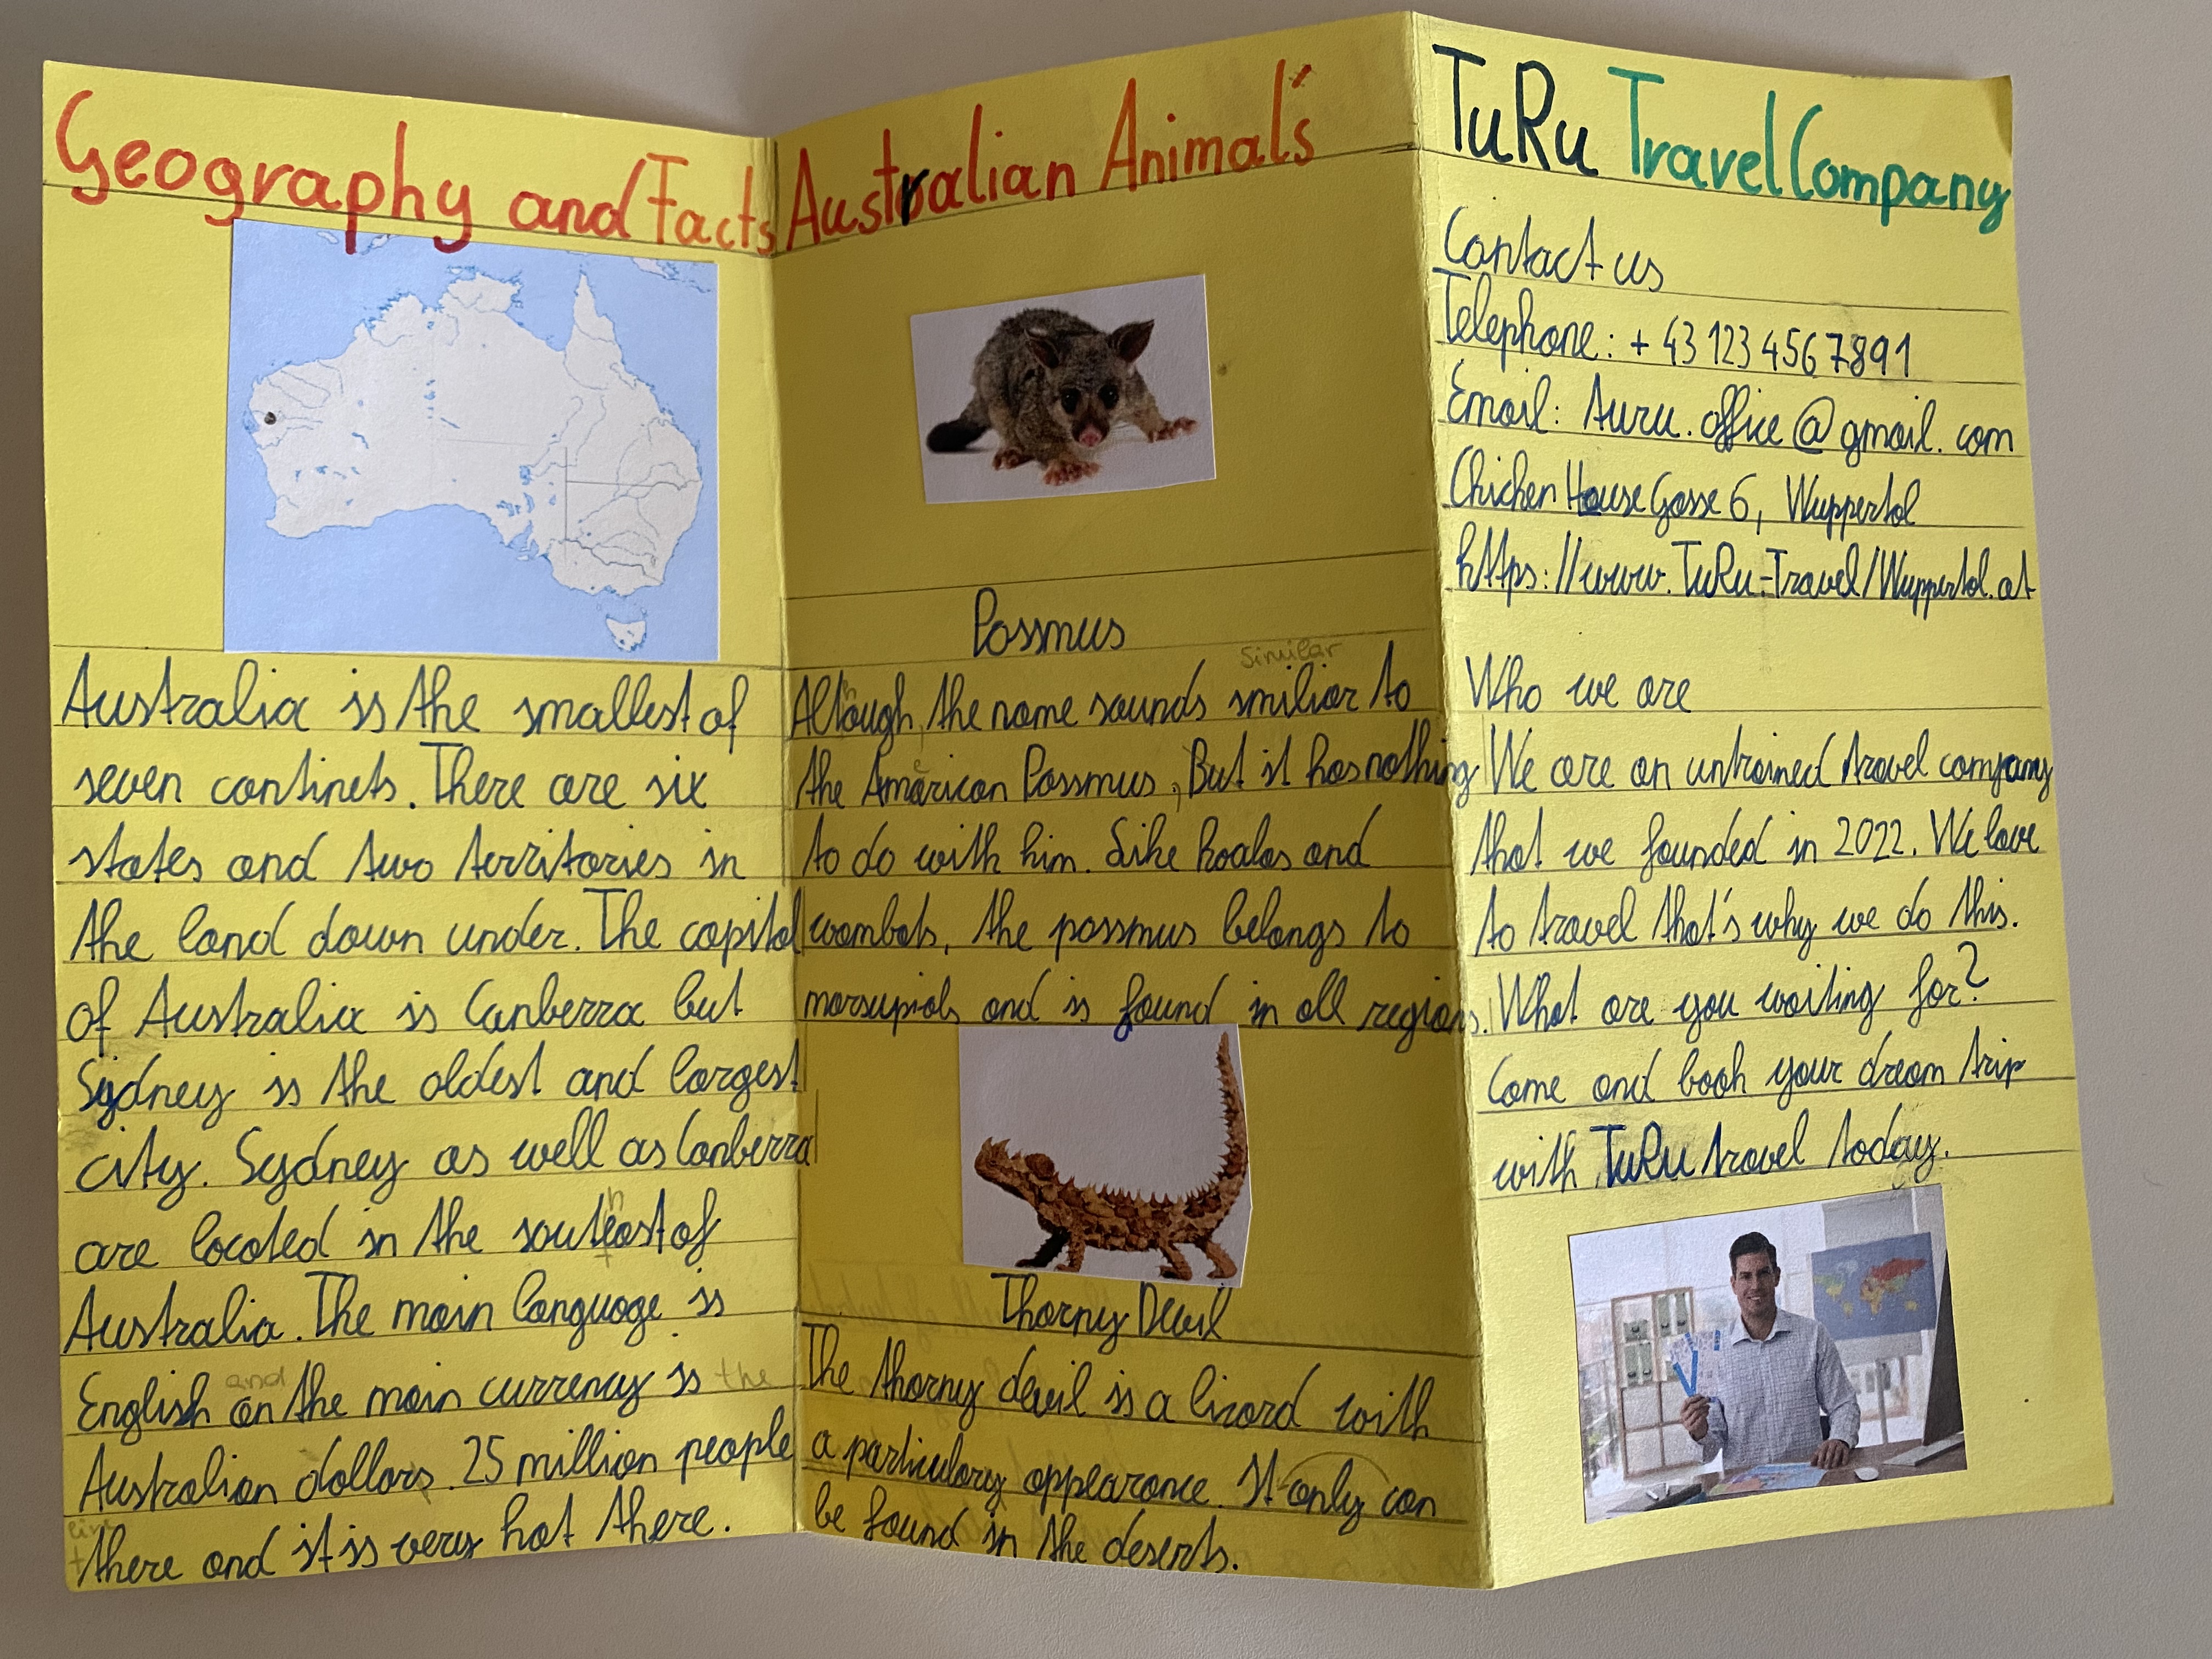 Geography and Facts
Australia is the smallest of
seven continets. There are six
states and two territories in
the land down under. The capital
of Australia is Canberra but
Sydney is the oldest and largest
city. Sydney as well as Canberra
h
are located in the souteast of
Australia. The main language is
and the
English an the main currency is
Australian dollars. 25 million people
live
there and it is very hot there.
Australian Animal's
Possmus
similar
h
Altough, the name sounds smiliar to
e
the Amarican Possmus, But it has nothing
to do with him. Like koalas and
wombats, the possmus belongs to
marsupials and is found in all regions.
Thorny Devil
The thorny devil is a lizard with
a particulary appearance. It only can
be found in the deserts.
TuRu Travel Company
Contact us
Telephone: + 43 123 456 7891
Email: turu.office@gmail.com
Chicken House Gasse 6, Wuppertal
https://www.TuRu-Travel/Wuppertal.at
Who we are
We are an untrained travel company
that we founded in 2022. We love
to travel that's why we do this.
What are you waiting for?
Come and book your dream trip
with TuRu travel today.